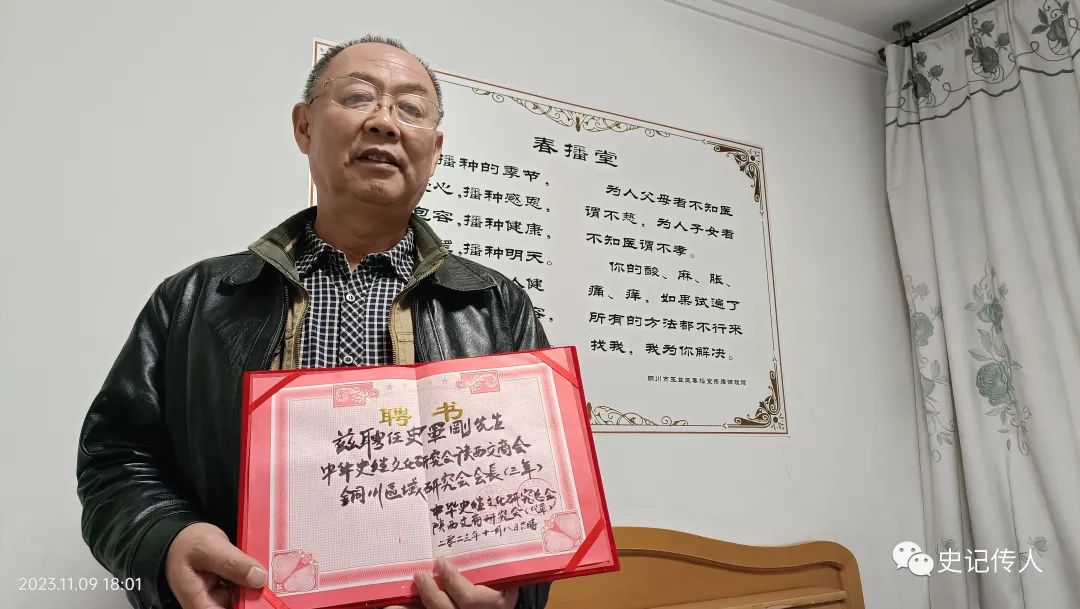 春播堂
播种的季节，
心，播种感恩，
包容，播种健康，
播种明天。
人健
容，
为人父母者不知医
谓不慈，为人子女者
不知医谓不孝。
你的酸、麻、胀、
痛、痒，如果试遍了
所有的方法都不行来
找我，我为你解决。
聘书
兹聘任史军刚先生
中华史姓文化研究会陕西文商会
铜川區域研究会会長（三年）
中华史姓文化研究总会
陕西文商研究会（代章）
二零二三年十一月八日
2023.11.09 18:01
史记传人